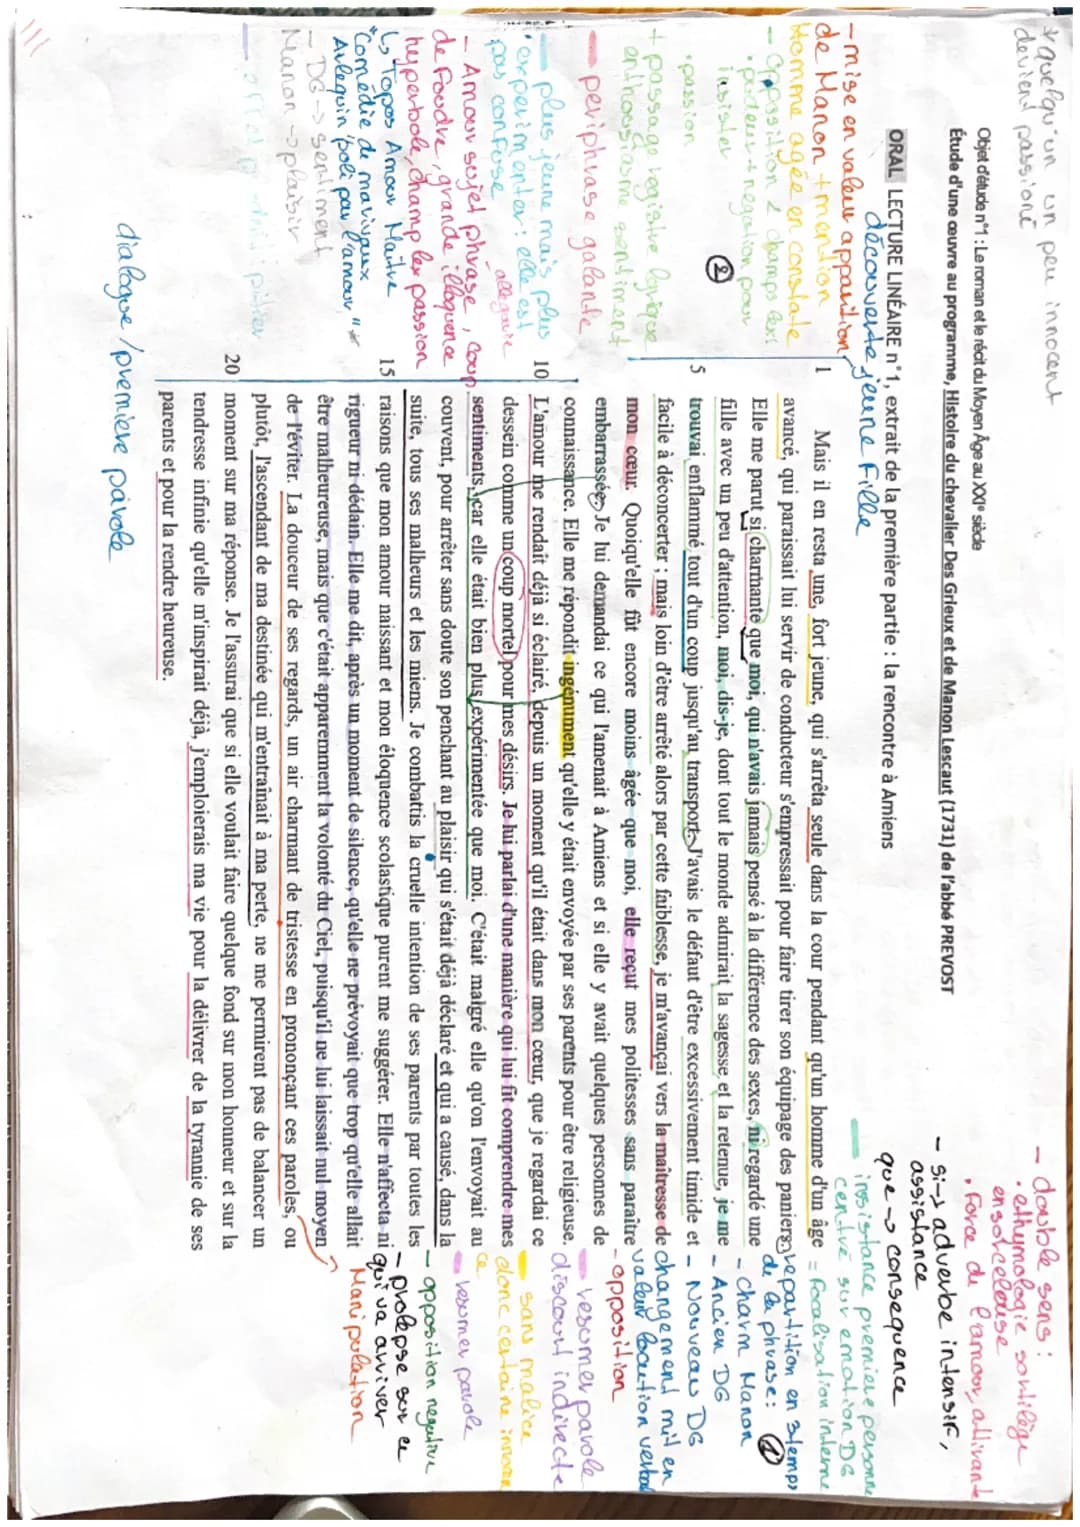 *quelqu'un un peu innocent
devient passioné
Objet d'étude n°1 : Le roman et le récit du Moyen Âge au XXIe siècle
Étude d'une œuvre au programme, Histoire du chevalier Des Grieux et de Manon Lescaut (1731) de l'abbé PREVOST
ORAL LECTURE LINÉAIRE n°1, extrait de la première partie : la rencontre à Amiens
découverte jeune fille
- double sens :
. ethymologie sortilège
ensorceleuse
. Force de l'amour, attirante
- si -> adverbe intensif,
assistance
que -> consequence
insistance premiere personne
centré sur emotion DG
1 Mais il en resta une, fort jeune, qui s'arrêta seule dans la cour pendant qu'un homme d'un âge
avancé, qui paraissait lui servir de conducteur s'empressait pour faire tirer son équipage des paniers.
Elle me parut si charmante que moi, qui n'avais jamais pensé à la différence des sexes, ni regardé une
fille avec un peu d'attention, moi, dis-je, dont tout le monde admirait la sagesse et la retenue, je me
5 trouvai enflammé tout d'un coup jusqu'au transport. J'avais le défaut d'être excessivement timide et
facile à déconcerter ; mais loin d'être arrêté alors par cette faiblesse, je m'avançai vers la maîtresse de
mon cœur. Quoiqu'elle fût encore moins âgée que moi, elle reçut mes politesses sans paraître
embarrassée. Je lui demandai ce qui l'amenait à Amiens et si elle y avait quelques personnes de
connaissance. Elle me répondit ingénument qu'elle y était envoyée par ses parents pour être religieuse.
10 L'amour me rendait déjà si éclairé, depuis un moment qu'il était dans mon cœur, que je regardai ce
dessein comme un coup mortel pour mes désirs. Je lui parlai d'une manière qui lui fit comprendre mes
sentiments, car elle était bien plus expérimentée que moi. C'était malgré elle qu'on l'envoyait au
couvent, pour arrêter sans doute son penchant au plaisir qui s'était déjà déclaré et qui a causé, dans la
suite, tous ses malheurs et les miens. Je combattis la cruelle intention de ses parents par toutes les
15 raisons que mon amour naissant et mon éloquence scolastique purent me suggérer. Elle n'affecta ni
rigueur ni dédain. Elle me dit, après un moment de silence, qu'elle ne prévoyait que trop qu'elle allait
être malheureuse, mais que c'était apparemment la volonté du Ciel, puisqu'il ne lui laissait nul moyen
de l'éviter. La douceur de ses regards, un air charmant de tristesse en prononçant ces paroles, ou
plutôt, l'ascendant de ma destinée qui m'entraînait à ma perte, ne me permirent pas de balancer un
20 moment sur ma réponse. Je l'assurai que si elle voulait faire quelque fond sur mon honneur et sur la
tendresse infinie qu'elle m'inspirait déjà, j'emploierais ma vie pour la délivrer de la tyrannie de ses
parents et pour la rendre heureuse.
- mise en valeur apparition
de Manon + mention
Homme agée en constate
- opposition 2 champs lexi
. pudeur + negation pour
insister
. passion
②
+ passage registre logique
enthousiasme sentiment
periphrase galante
plus jeune mais plus
experimenter : elle est
pas confuse
allegorie
- Amour sujet phrase, coup
de Foudre, grande illoquence
hyperbole, champ lex passion
↳ Topos Amour Maitre
"Comédie de marivaux
Arlequin poli par l'amour" *
- DG -> sentiment
Manon -> plaisir
dialogue / premiere parole
= Focalisation interne
repartition en 3 temps
de la phrase : ①
- Charm Manon
- Ancien DG
- Nouveau DG
changement mit en
valeur locution verbal
- opposition
resumer parole
discourt indirecte
sans malice
donc certaine innocen
ce
resumer parole
- opposition negative
- prolepse sur ce
qui va arriver
Manipulation